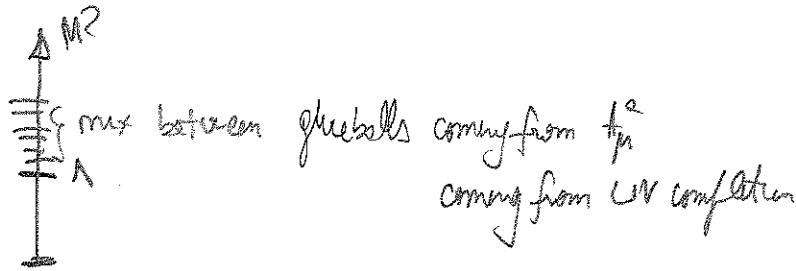 M²
mix between glueballs coming from A_μ^a
Λ coming from UV completion